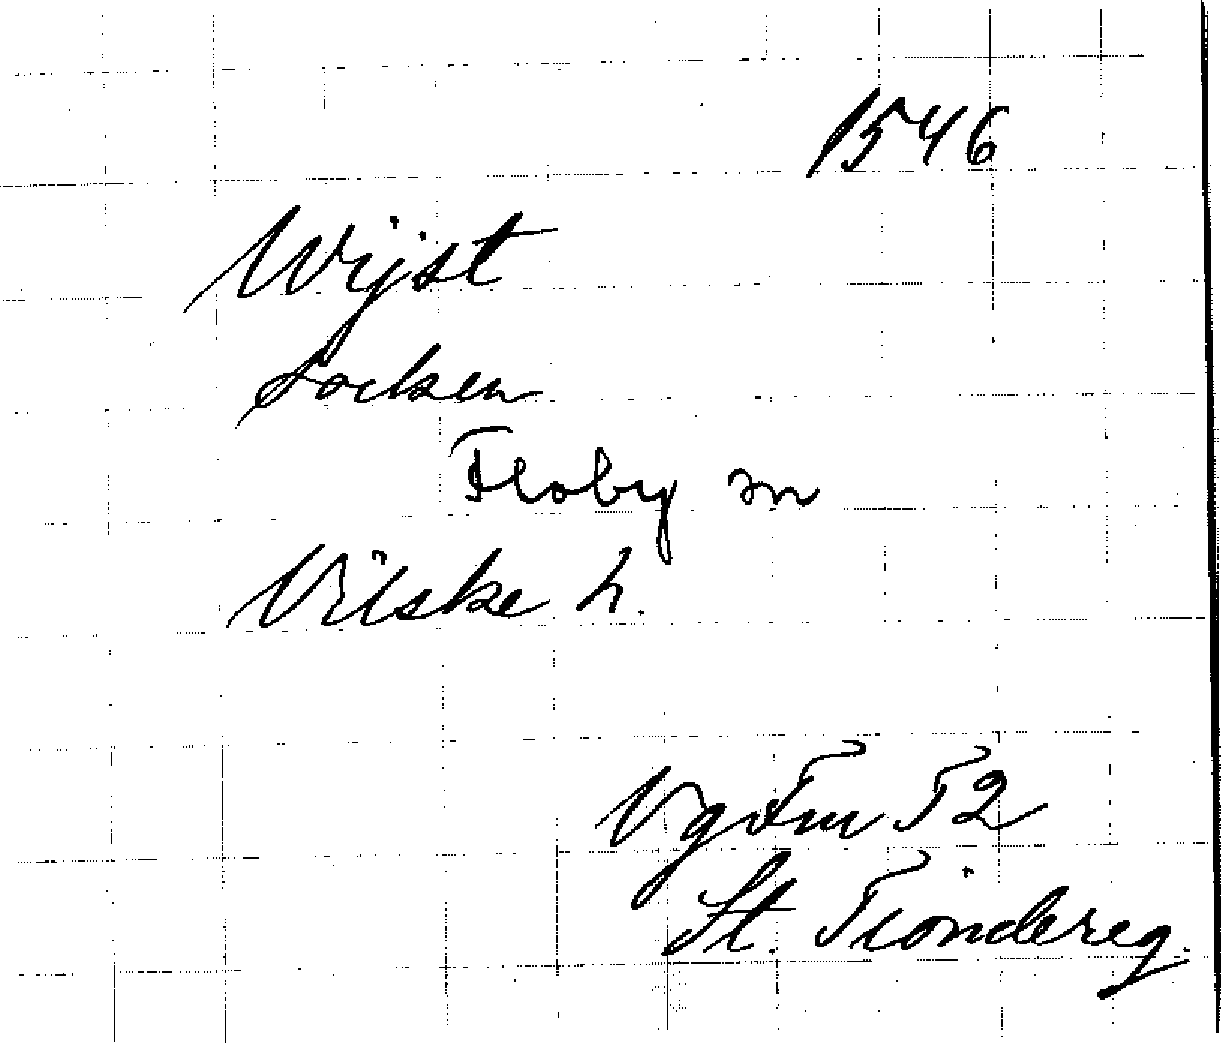 1546
Wijst
Socken
Floby sn
Vilske h.
Vg Fm 52
St. Tiondereg.